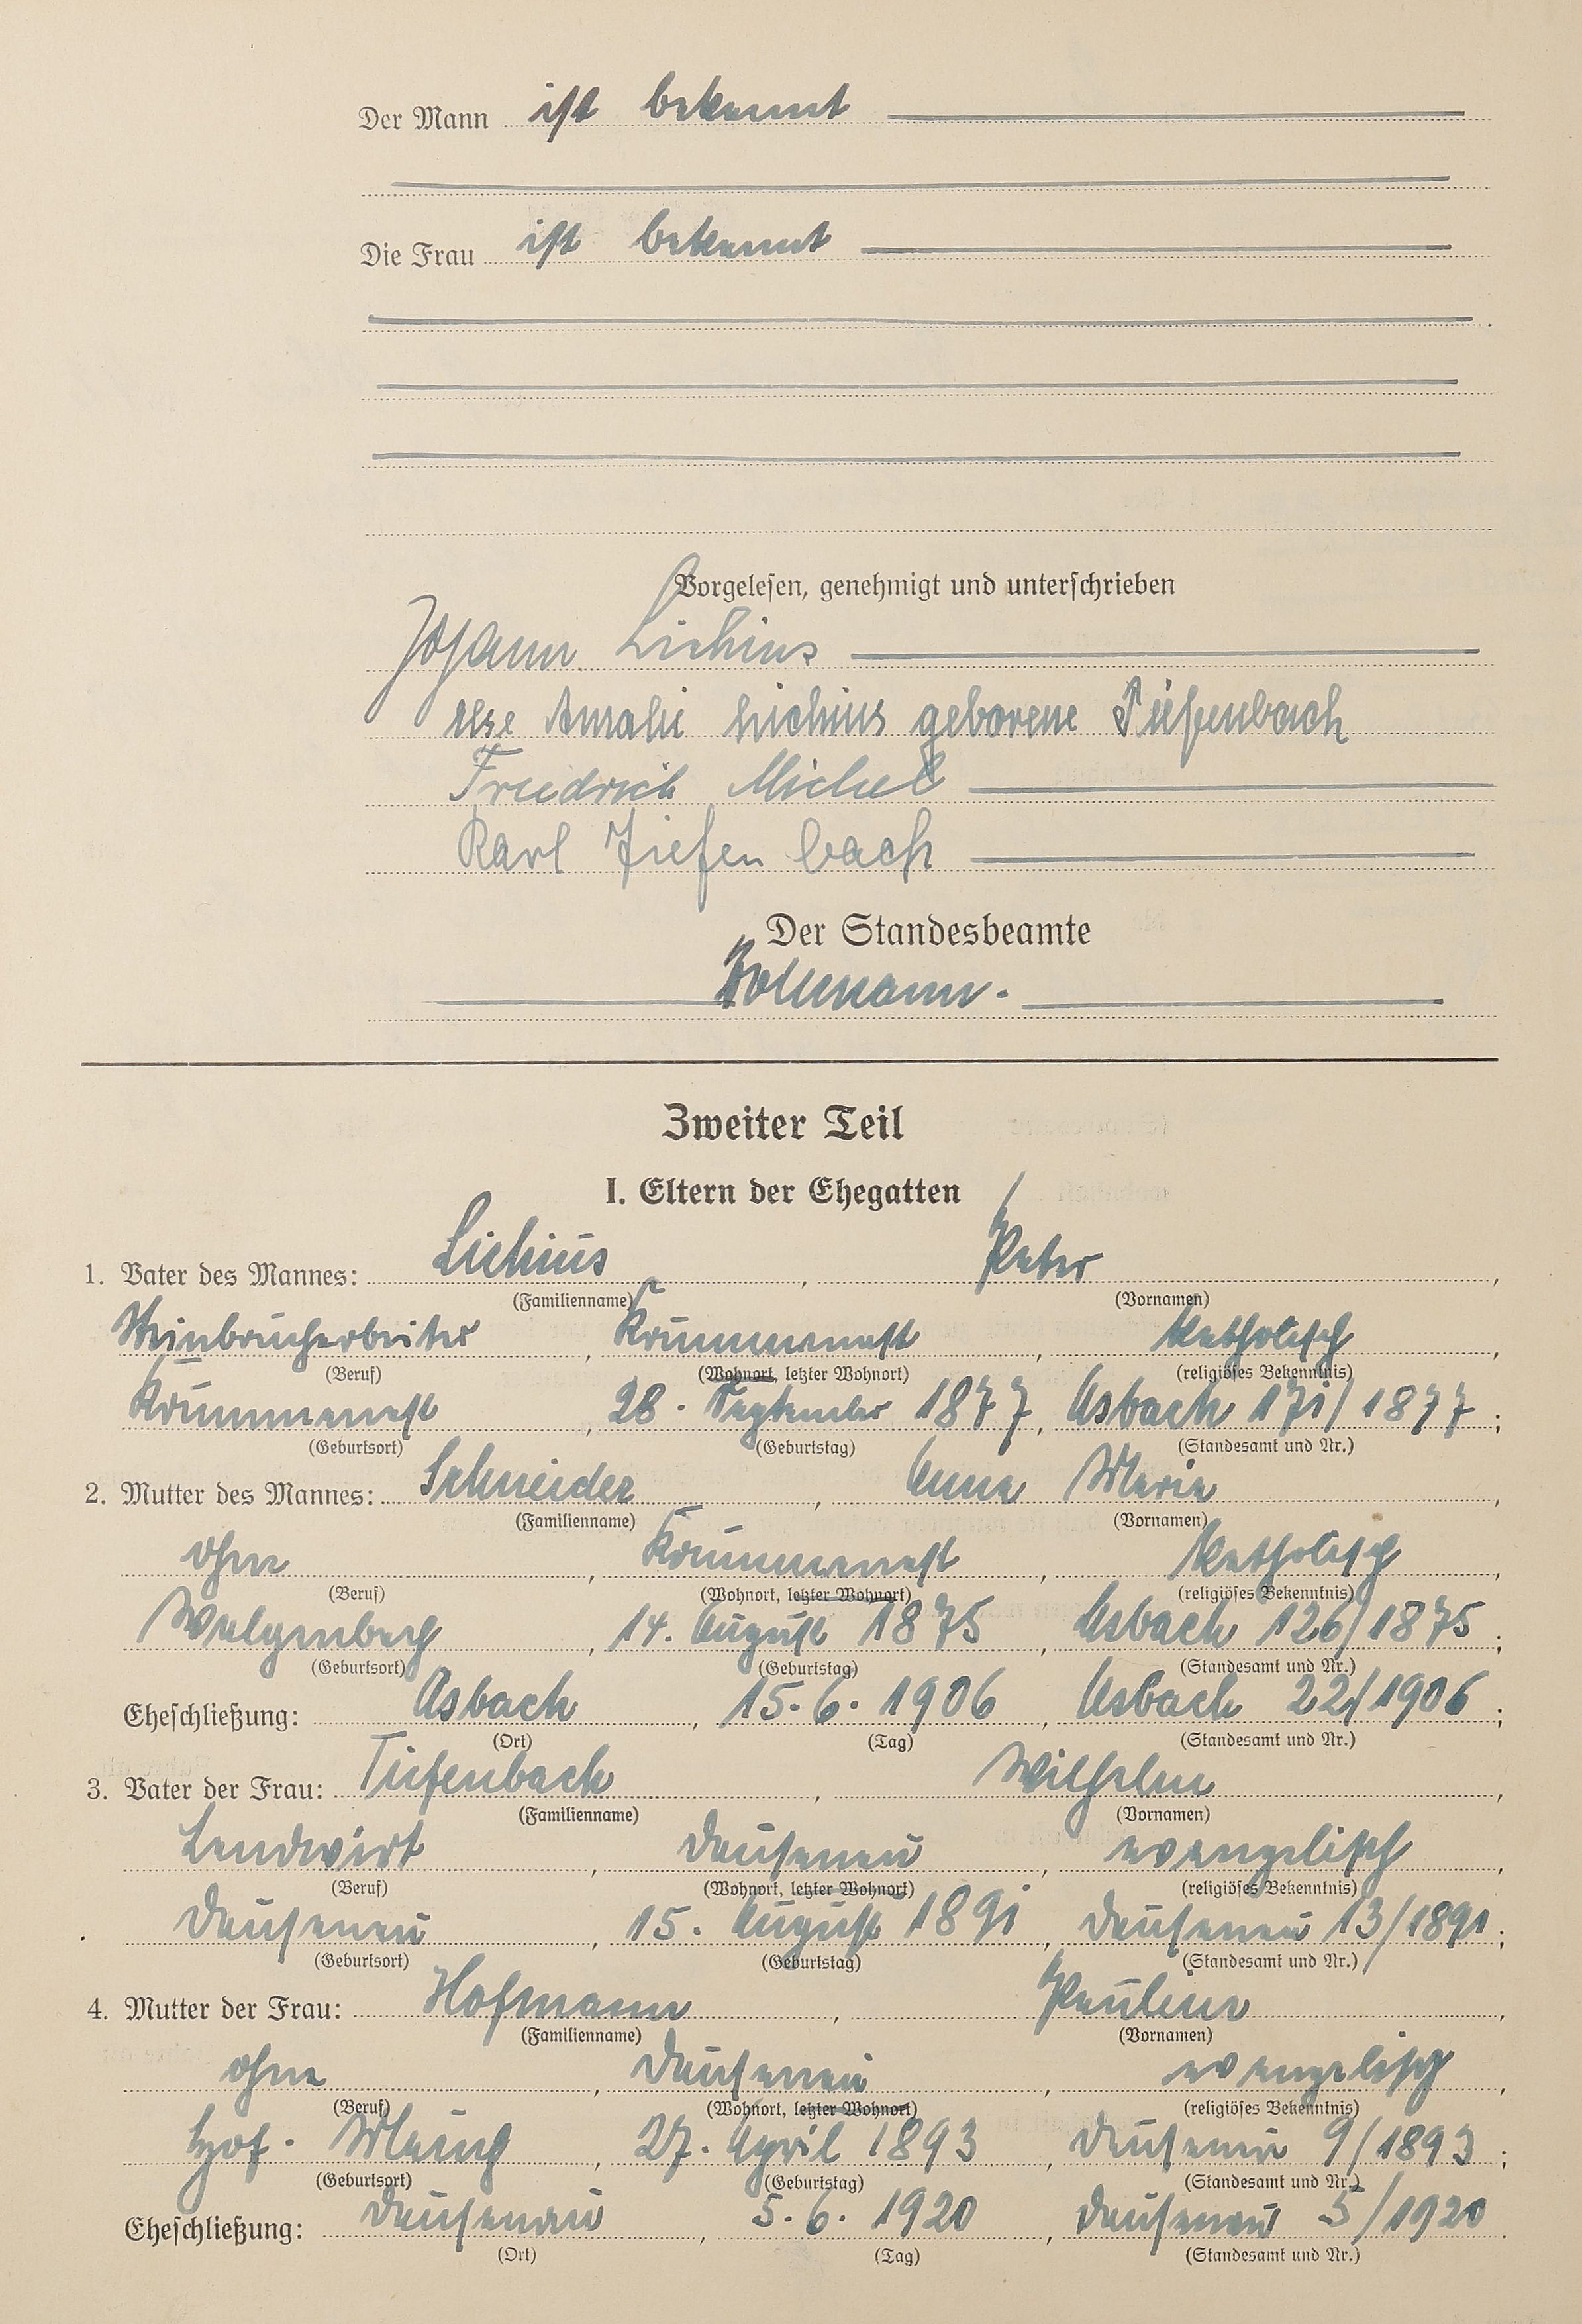 Der Mann ist bekannt
Die Frau ist bekannt
Vorgelesen, genehmigt und unterschrieben
Johann Lichius
Ilse Amalie Lichius geborene Tiefenbach
Friedrich Michel
Karl Tiefenbach
Der Standesbeamte
Zweiter Teil
I. Eltern der Ehegatten
1. Vater des Mannes: Lichius, Peter,
(Familienname) (Vornamen)
Steinbrucharbeiter, Krummenast, katholisch,
(Beruf) (Wohnort, letzter Wohnort) (religiöses Bekenntnis)
Krummenast, 28. September 1877, Asbach 171/1877;
(Geburtsort) (Geburtstag) (Standesamt und Nr.)
2. Mutter des Mannes: Schneider, Anna Maria,
(Familienname) (Vornamen)
ohne, Krummenast, katholisch,
(Beruf) (Wohnort, letzter Wohnort) (religiöses Bekenntnis)
Walgenbach, 14. August 1875, Asbach 126/1875;
(Geburtsort) (Geburtstag) (Standesamt und Nr.)
Eheschließung: Asbach, 15.6.1906, Asbach 22/1906;
(Ort) (Tag) (Standesamt und Nr.)
3. Vater der Frau: Tiefenbach, Wilhelm,
(Familienname) (Vornamen)
Landwirt, Dausenau, evangelisch,
(Beruf) (Wohnort, letzter Wohnort) (religiöses Bekenntnis)
Dausenau, 15. August 1891, Dausenau 13/1891;
(Geburtsort) (Geburtstag) (Standesamt und Nr.)
4. Mutter der Frau: Hofmann, Pauline,
(Familienname) (Vornamen)
ohne, Dausenau, evangelisch,
(Beruf) (Wohnort, letzter Wohnort) (religiöses Bekenntnis)
Hof-Mauch, 27. April 1893, Dausenau 9/1893;
(Geburtsort) (Geburtstag) (Standesamt und Nr.)
Eheschließung: Dausenau, 5.6.1920, Dausenau 5/1920.
(Ort) (Tag) (Standesamt und Nr.)